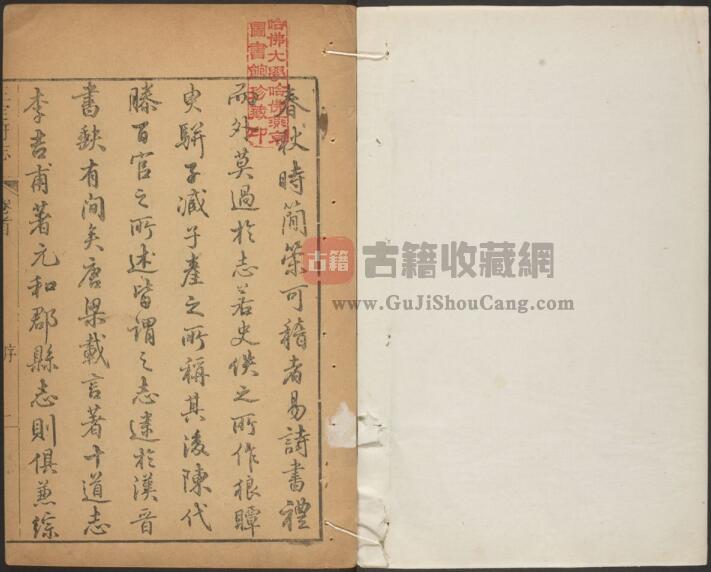 春秋時簡策可稽者易詩書禮
而外莫過於志若史佚之所作狼瞫
史駢子臧子產之所稱其後陳代
滕百官之所述皆謂之志逮於漢晉
書缺有間矣唐梁載言著十道志
李吉甫著元和郡縣志則俱兼綜
卷首
序
哈佛大學哈佛燕京
圖書館珍藏印
古籍
古籍收藏網
www.GuJiShouCang.com